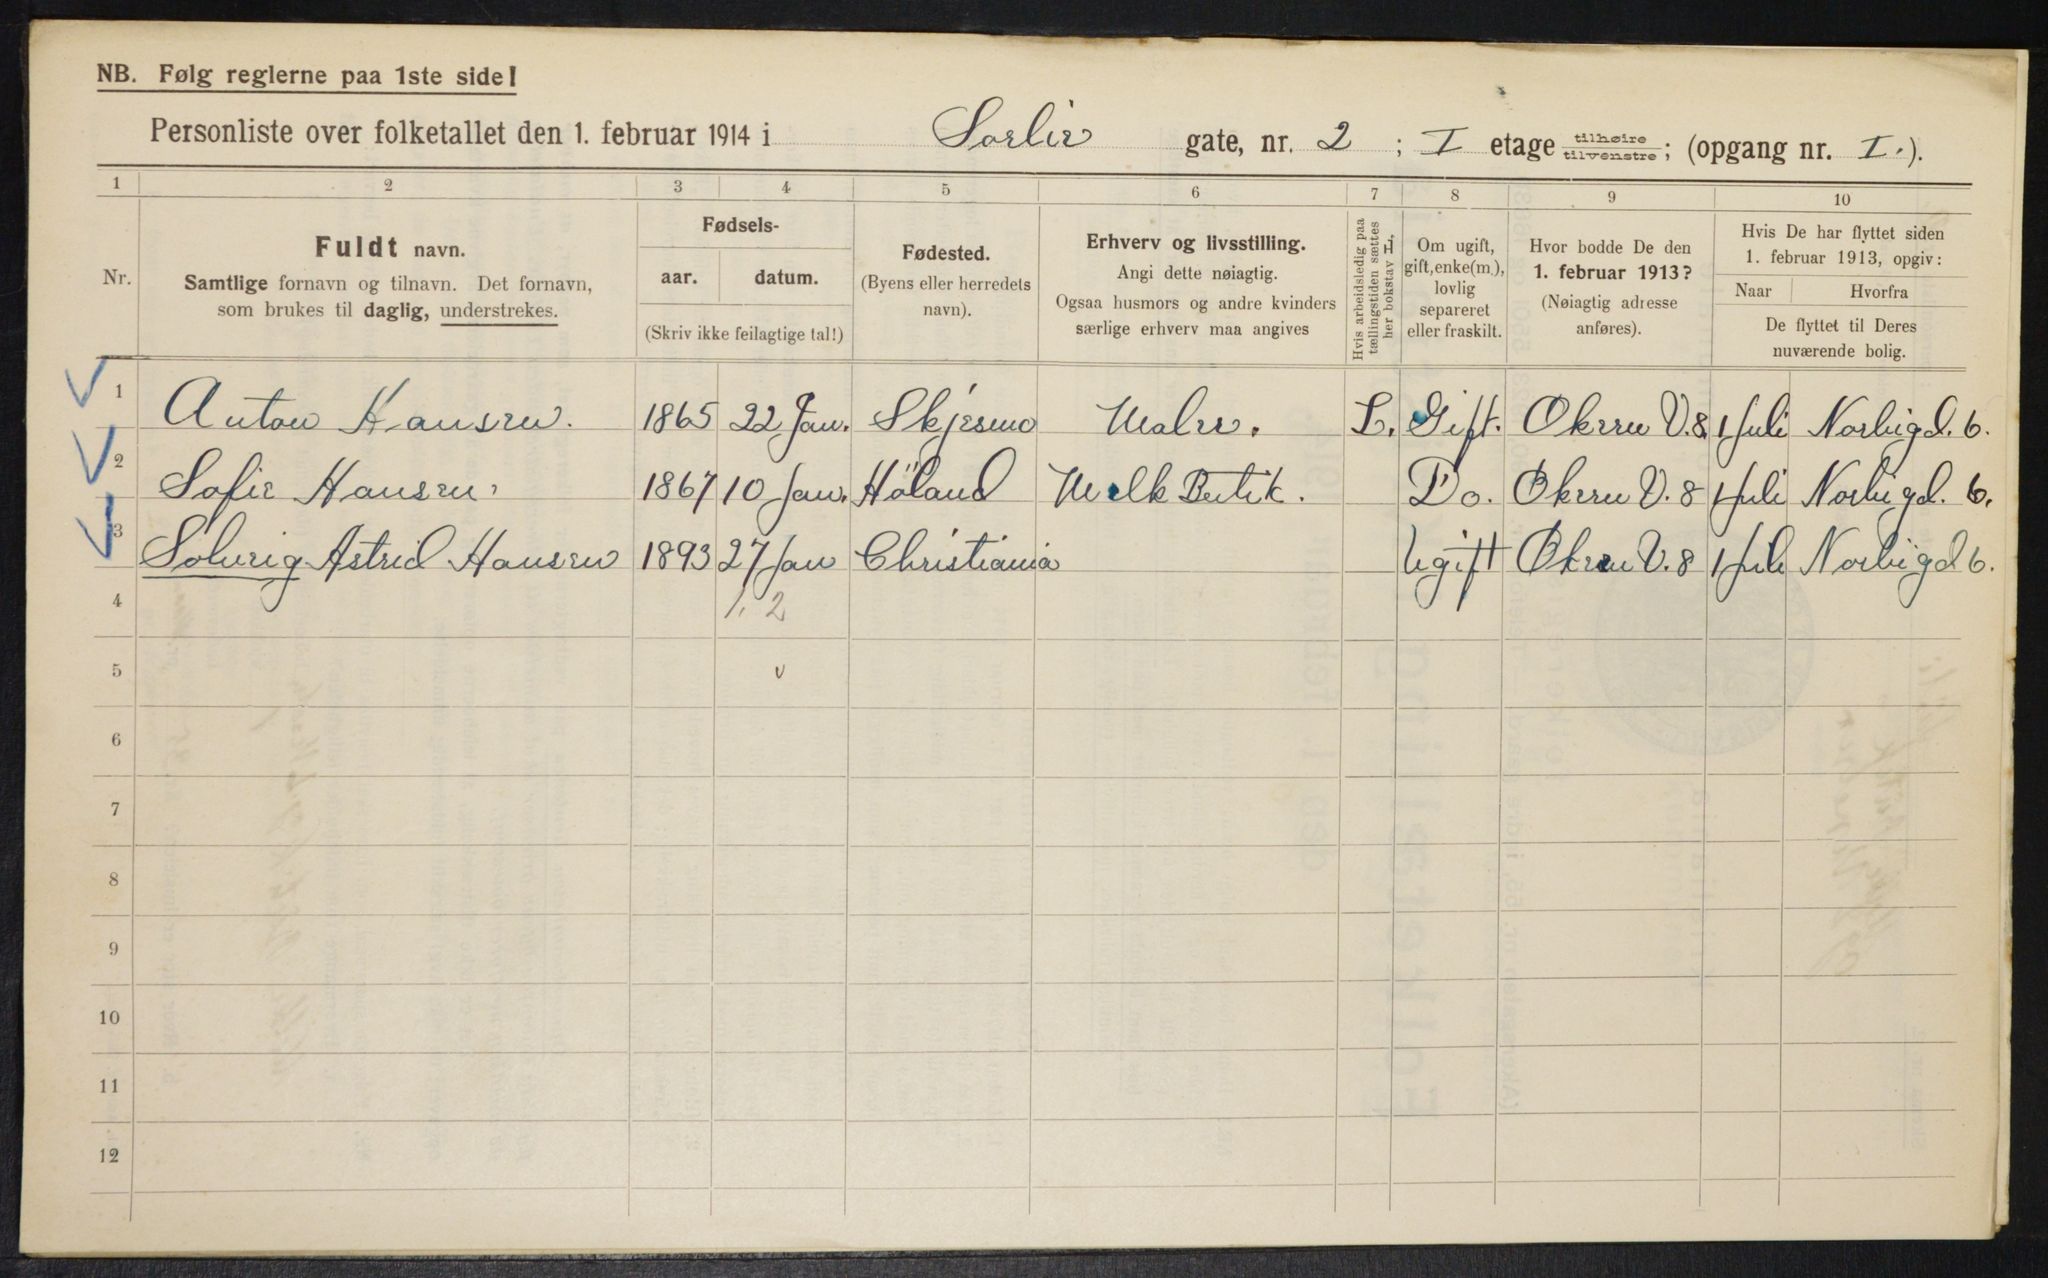 NB. Følg reglerne paa 1ste side!
Personliste over folketallet den 1. februar 1914 i Sorlie gate, nr. 2 ; I etage tilhøire/tilvenstre; (opgang nr. I.).
1 2 3 4 5 6 7 8 9 10
Nr.
Fuldt navn.
Samtlige fornavn og tilnavn. Det fornavn,
som brukes til daglig, understrekes.
Fødsels-
aar. datum.
(Skriv ikke feilagtige tal!)
Fødested.
(Byens eller herredets
navn).
Erhverv og livsstilling.
Angi dette nøiagtig.
Ogsaa husmors og andre kvinders
særlige erhverv maa angives
Hvis arbeidsledig paa
tællingstiden sættes
her bokstav L.
Om ugift,
gift, enke(m.),
lovlig
separeret
eller fraskilt.
Hvor bodde De den
1. februar 1913?
(Nøiagtig adresse
anføres).
Hvis De har flyttet siden
1. februar 1913, opgiv:
Naar Hvorfra
De flyttet til Deres
nuværende bolig.
1 Anton Hansen. 1865 22 Jan. Skjesmo Maler. L. Gift. Økern V. 8 1 Juli Norbygd. 6.
2 Sofie Hansen. 1867 10 Jan. Høland Melk Butik. Do. Økern V. 8 1 Juli Norbygd. 6.
3 Solveig Astrid Hansen 1893 27 Jan Christiania Ugift Økern V. 8 1 Juli Norbygd 6.
4 1. 2
5
6
7
8
9
10
11
12